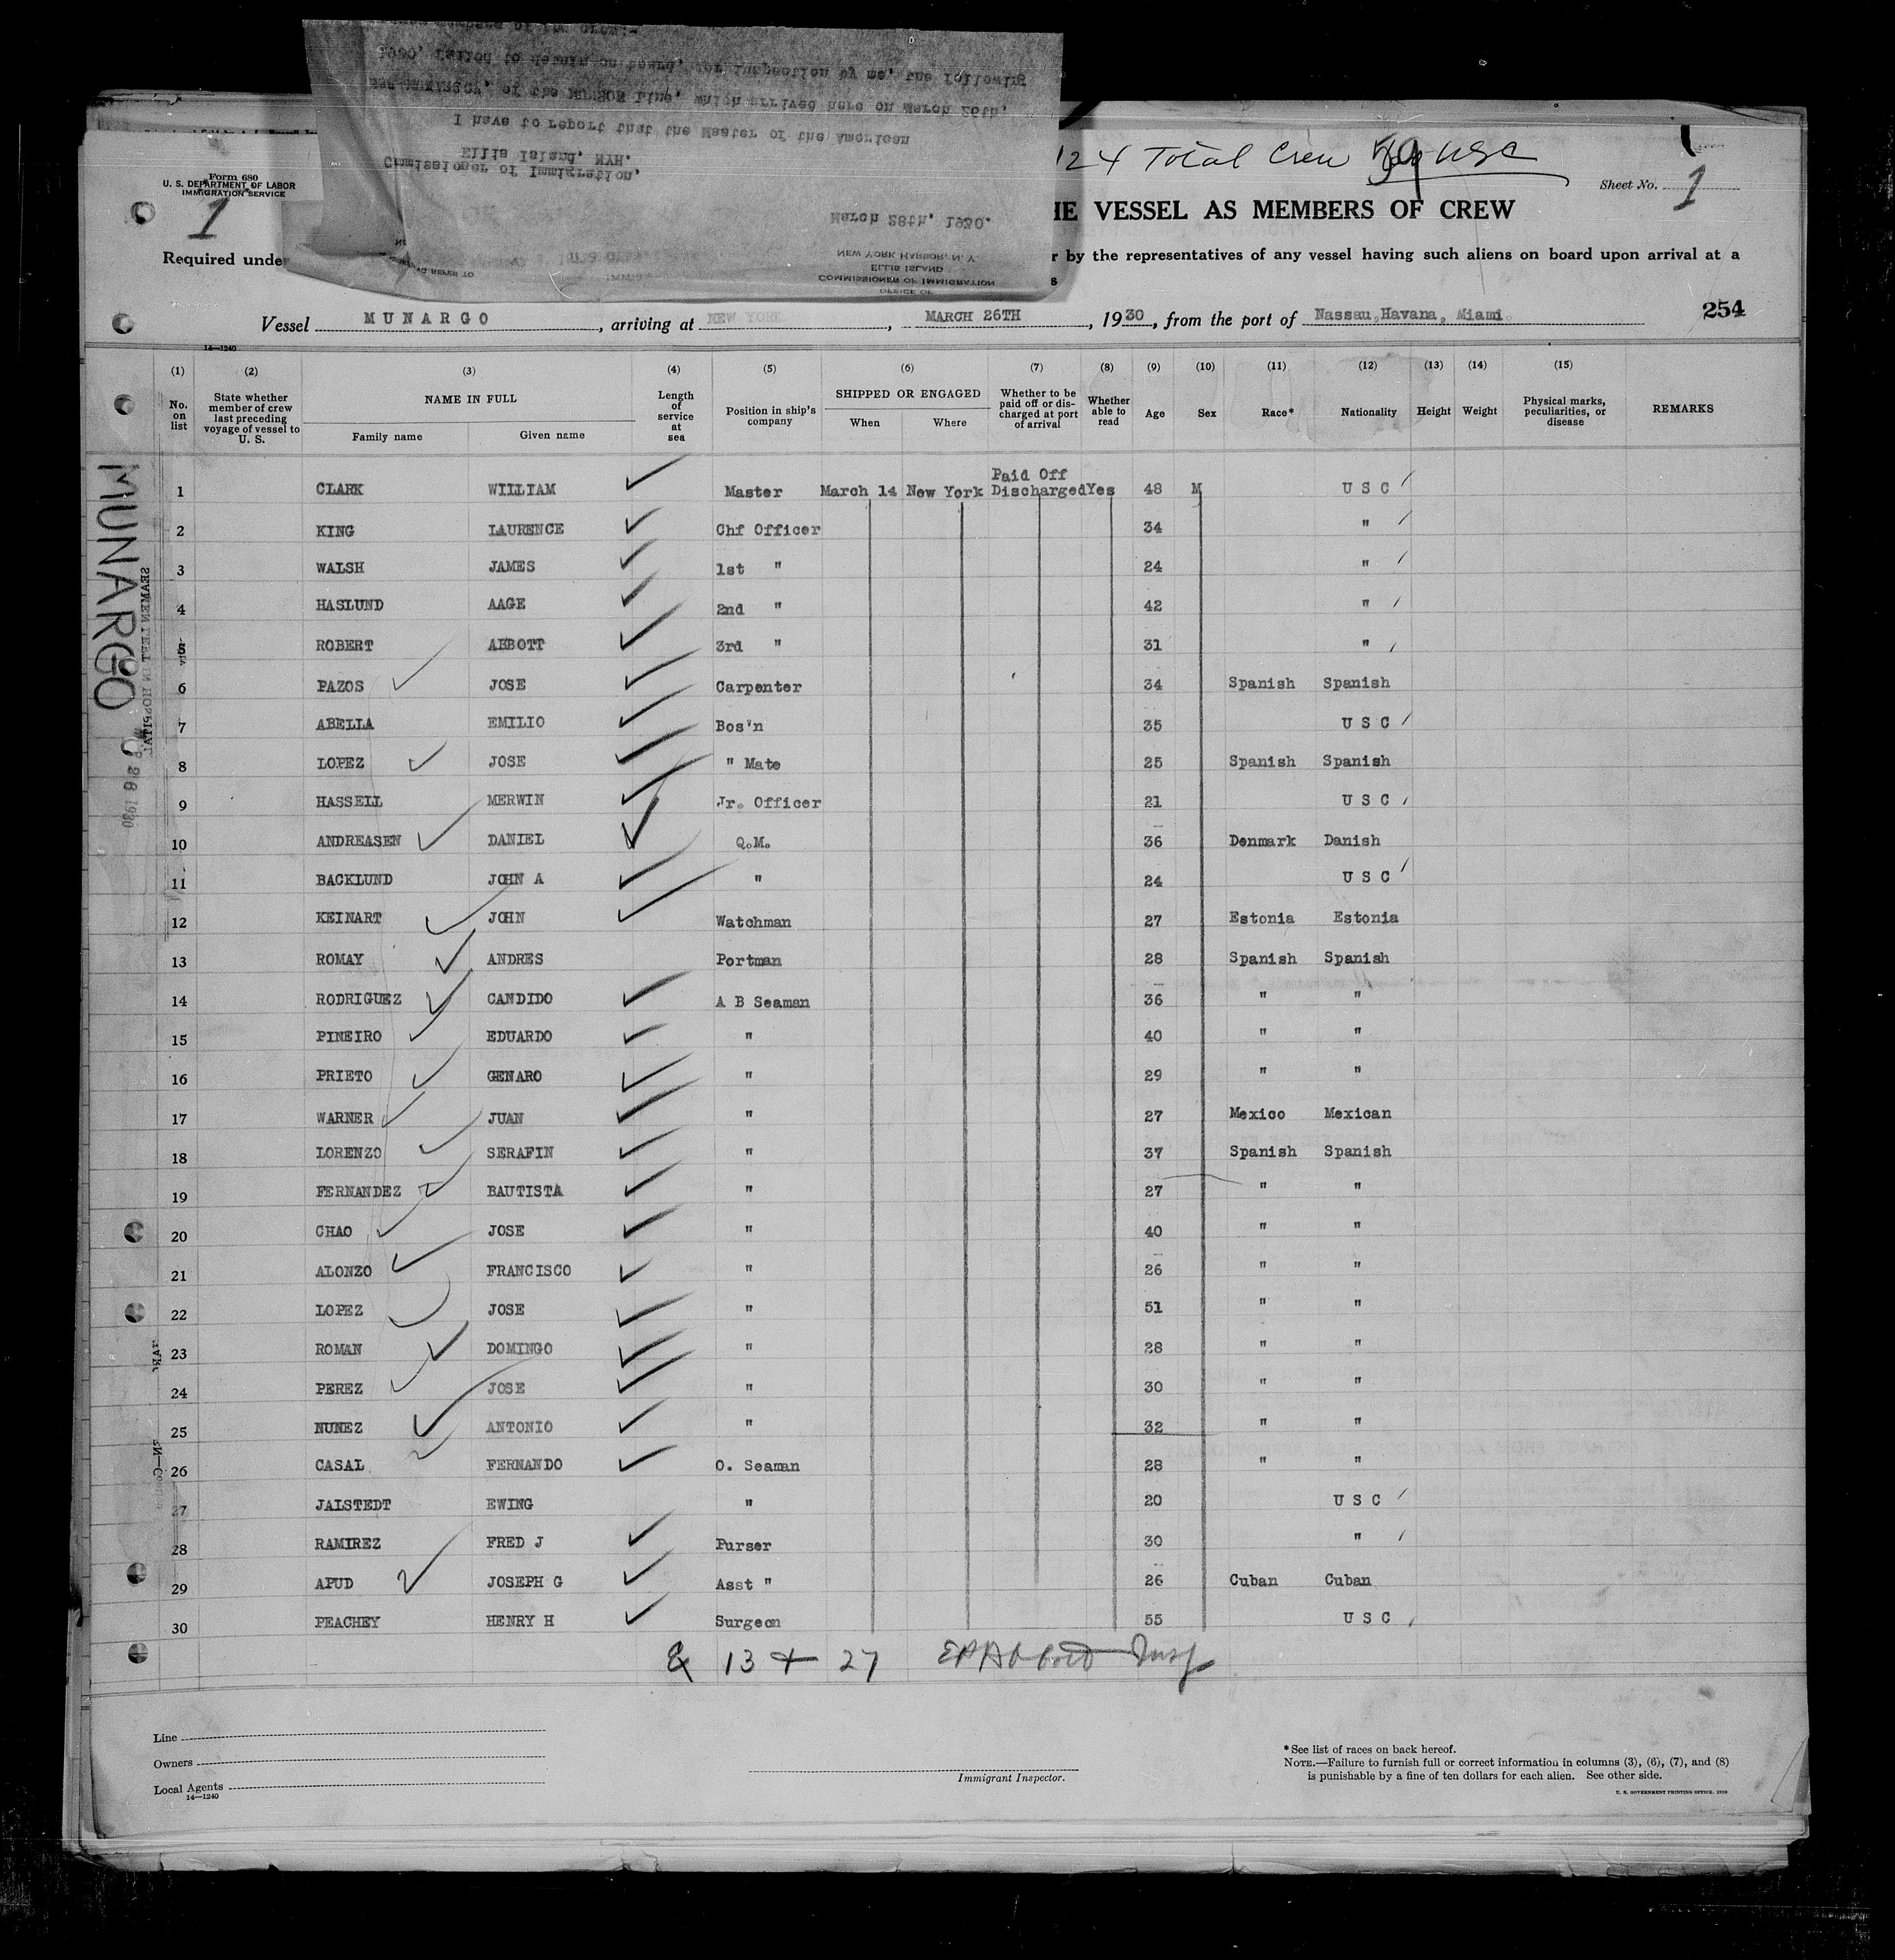 1930, failed to detain on board, for inspection by me, the following
MUNARGO, of the MUNSON Line, which arrived here on March 26th,
I have to report that the Master of the American
Ellis Island, NYH.
Commissioner of Immigration,
March 28th, 1930.
NEW YORK HARBOR, N. Y.
ELLIS ISLAND
COMMISSIONER OF IMMIGRATION
OFFICE OF
124 Total Crew 59 USC
Form 680
U. S. DEPARTMENT OF LABOR
IMMIGRATION SERVICE
1
Sheet No. 1
VESSEL AS MEMBERS OF CREW
Required under
by the representatives of any vessel having such aliens on board upon arrival at a
Vessel MUNARGO, arriving at NEW YORK, MARCH 26TH, 1930, from the port of Nassau, Havana, Miami.
254
14—1240
(1) No. on list (2) State whether member of crew last preceding voyage of vessel to U. S. (3) NAME IN FULL Family name Given name (4) Length of service at sea (5) Position in ship's company (6) SHIPPED OR ENGAGED When Where (7) Whether to be paid off or discharged at port of arrival (8) Whether able to read (9) Age (10) Sex (11) Race* (12) Nationality (13) Height (14) Weight (15) Physical marks, peculiarities, or disease REMARKS
MUNARGO
SEAMEN LEFT IN HOSPITAL
1 CLARK WILLIAM Master March 14 New York Paid Off Discharged Yes 48 M U S C
2 KING LAURENCE Chf Officer 34 "
3 WALSH JAMES 1st " 24 "
4 HASLUND AAGE 2nd " 42 "
5 ROBERT ABBOTT 3rd " 31 "
6 PAZOS JOSE Carpenter 34 Spanish Spanish
7 ABELLA EMILIO Bos'n 35 U S C
8 LOPEZ JOSE " Mate 25 Spanish Spanish
9 HASSELL MERWIN Jr. Officer 21 U S C
10 ANDREASEN DANIEL Q.M. 36 Denmark Danish
11 BACKLUND JOHN A " 24 U S C
12 KEINART JOHN Watchman 27 Estonia Estonia
13 ROMAY ANDRES Portman 28 Spanish Spanish
14 RODRIGUEZ CANDIDO A B Seaman 36 " "
15 PINEIRO EDUARDO " 40 " "
16 PRIETO GENARO " 29 " "
17 WARNER JUAN " 27 Mexico Mexican
18 LORENZO SERAFIN " 37 Spanish Spanish
19 FERNANDEZ BAUTISTA " 27 " "
20 CHAO JOSE " 40 " "
21 ALONZO FRANCISCO " 26 " "
22 LOPEZ JOSE " 51 " "
23 ROMAN DOMINGO " 28 " "
24 PEREZ JOSE " 30 " "
25 NUNEZ ANTONIO " 32 " "
26 CASAL FERNANDO O. Seaman 28 " "
27 JALSTEDT EWING " 20 U S C
28 RAMIREZ FRED J Purser 30 "
29 APUD JOSEPH G Asst " 26 Cuban Cuban
30 PEACHEY HENRY H Surgeon 55 U S C
13 + 27
Line
Owners
Local Agents
14—1240
Immigrant Inspector.
* See list of races on back hereof.
NOTE.—Failure to furnish full or correct information in columns (3), (6), (7), and (8)
is punishable by a fine of ten dollars for each alien. See other side.
U. S. GOVERNMENT PRINTING OFFICE: 1929